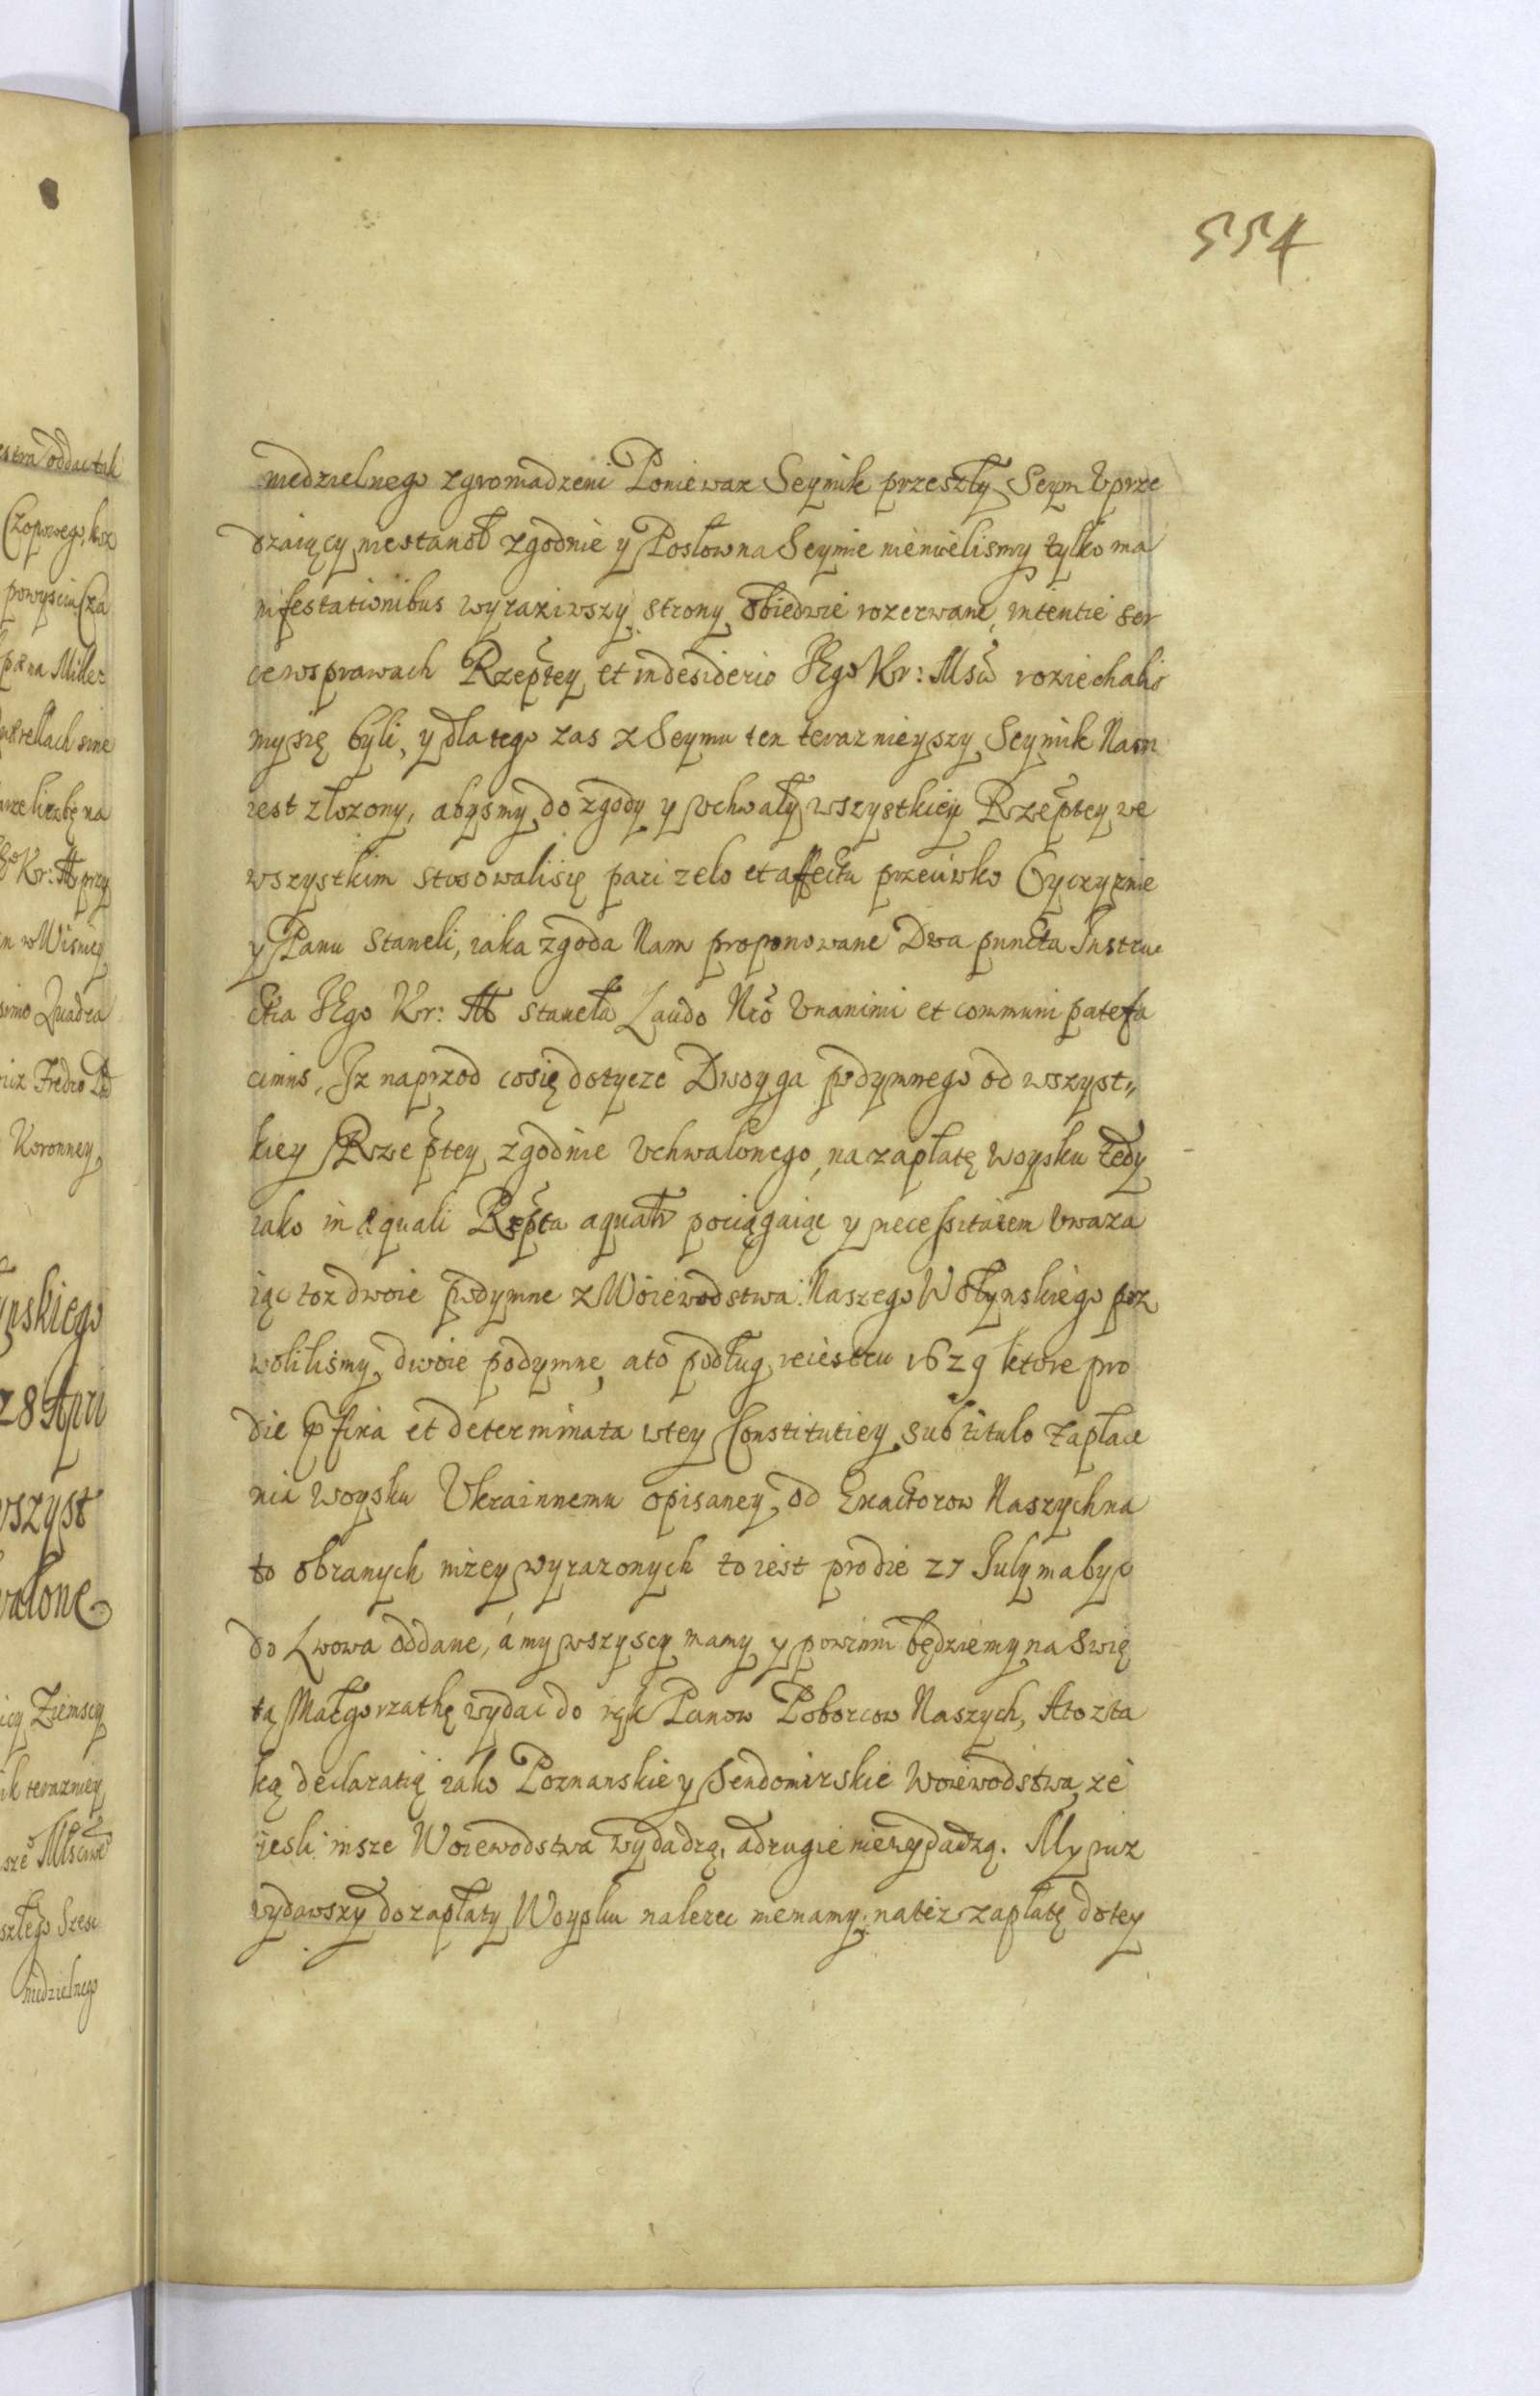 554
niedzielnego zgromadzeni Poniewaz Seymik przeszły Seym Vprze
dzaiący niestanoł zgodnie y Posłow na Seymie niemielismy tylko ma
nifestationibus wyraziwszy strony obiedwie rozerwane intentie ser
ce w sprawach Rzeptey et in desiderio JEgo Kr: Msci roziechalis
my się byli, y dla tego zas z Seymu ten teraznieyszy Seymik Nam
iest złozony, abysmy do zgody y vchwały wszystkiey Rzeptey we
wszystkim stosowali się pari zelo et affectu przeciwko Oyczyznie
y Panu staneli, iaka zgoda Nam proponowane Dwa puncta Instruc
ctia JEgo Kr: M staneła Laudo Nro Vnanimi et communi patefa
cimus, Iz naprzod co się dotycze Dwoyga podymnego od wszyst„
kiey Rzeptey zgodnie Vchwalonego, na zapłatę woysku tedy
iako in equali Rzepta aquali pociągaiąc y necessitatem Vwaza
iąc toz dwoie podymne z Woiewodstwa Naszego Wołynskiego poz
wolilismy dwoie podymne, a to podług reiestru 1629 ktore pro
die p fixa et determinata w tey Constitutiey sub titulo Zapłace
nia woysku Vkrainnemu opisaney, od Exactorow Naszych na
to obranych nizey wyrazonych to iest pro die 27 July ma byc
do Lwowa oddane, á my wszyscy mamy y powinni będziemy na Swię
tą Małgorzathę wydac do rąk Panow Poborcow Naszych, A to z ta
ką declaratią iako Poznanskie y Sendomirskie woiewodstwa, ze
jesli insze Woiewodstwa wydadzą, a drugie niewydadzą. My iuz
wydawszy do zapłaty Woysku nalezec niemamy. na tez zapłatę do tey